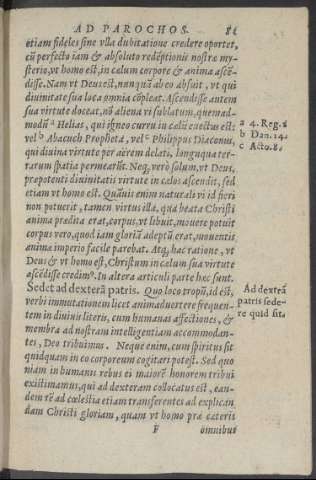 AD PAROCHOS. 81
etiam fideles sine vlla dubitatione credere oportet,
cũ perfecto iam & absoluto redẽptionis nostræ my-
sterio, vt homo est, in cælum corpore & anima ascẽ-
disse. Nam vt Deus est, nunquã ab eo abfuit, vt qui
diuinitate sua loca omnia cõpleat. Ascendisse autem
sua virtute doceat, nõ aliena vi sublatum, quemad-
modũ a Helias, qui igneo curru in cælũ euectus est:
vel b Abacuch Propheta, vel c Philippus Diaconus,
qui diuina virtute per aërem delati, longinqua ter-
rarum spatia permearũt. Neq; verò solum, vt Deus,
præpotenti diuinitatis virtute in cælos ascendit, sed
etiam vt homo est. Quãuis enim naturali vi id fieri
non potuerit, tamen virtus illa, qua beata Christi
anima prædita erat, corpus, vt libuit, mouere potuit
corpus vero, quod iam gloriã adeptũ erat, mouentis
animæ imperio facile parebat. Atq; hac ratione, vt
Deus & vt homo est, Christum in cælum sua virtute
ascẽdisse credim9. In altera articuli parte hæc sunt.
Sedet ad dexterã patris. Quo loco tropũ, id ẽst,
verbi immutationem licet animaduertere frequen-
tem in diuinis literis, cum humanas affectiones, &
membra ad nostram intelligentiam accommodan-
tes, Deo tribuimus. Neque enim, cum spiritus sit
quidquam in eo corporeum cogitari potest. Sed quo
niam in humanis rebus ei maiorẽ honorem tribui
existimamus, qui ad dexteram collocatus est, ean-
dem rẽ ad cœlestia etiam transferentes ad explican
dam Christi gloriam, quam vt homo præ cæteris
F omnibus
a 4. Reg. 2
b Dan. 14.
c Acto. 8.
Ad dexterã
patris sede-
re quid sit.